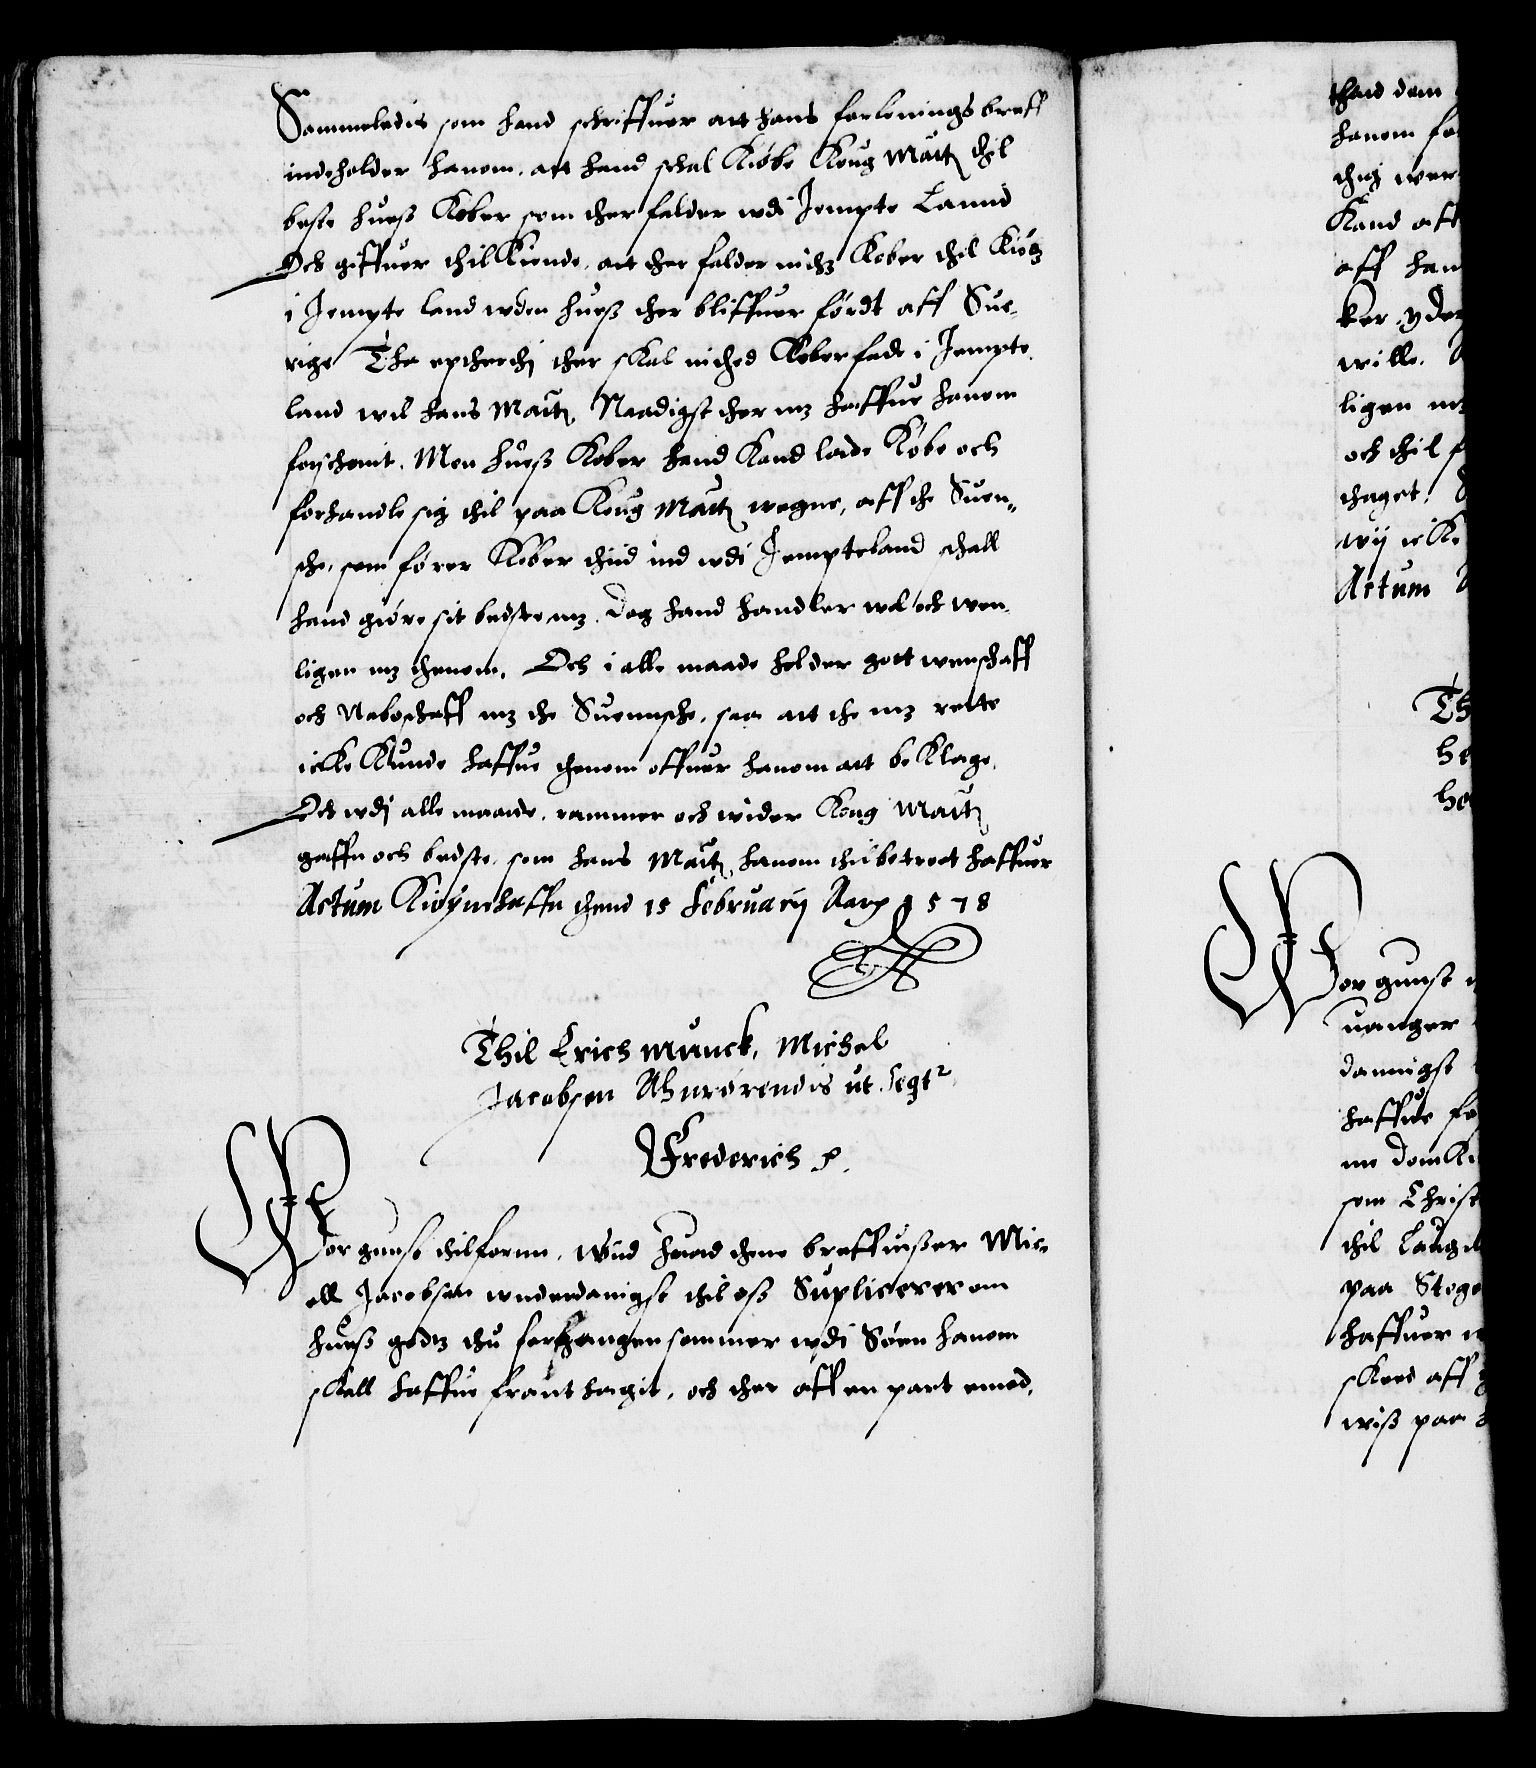 Sammeledis som hand schriffuer att hans forlenings breff
indeholder hanom, att hand schal Kiøbe Kong Maitz thil
beste huess Kober som ther falder wdi Jempte Lannd
Och giffuer thil Kiende, att ther falder nichz Kober thil Kiøbz
i Jempte land vden huess ther bliffuer førdt aff Sue-
rige Tha epctherthj ther skal inthed Kober fade i Jempte
land wil hans Maitz Naadigst ther mz haffue hanom
forschonit. Men huess Kober hand Kand lade Købe och
forhandle sig thil paa Kong Maitz wegne, aff the Suen-
sche, som fører Kober thid ind wdi Jempteland schall
hand giøre sit bedste mz. dog hand handler wel och wen-
ligen mz thenom. Och i alle maade holder gott wenschaff
och Naboschaff mz the Suennsche, saa att the mz rette
icke Kunde haffue thenom offuer hanom att beKlage.
Och wdj alle maade, rammer och wider Kong Maitz
gaffn och bedste, som hans Maitz hanom thilbetroet haffuer
Actum Kiøpnehaffn thend 15 Februarij Aarz 1578
Thil Erich Munck, Michel
Jacobsen Ahnrørendis ut. segtr
Frederich p.
Wor gunst thilforn. Wiid huad thene breffuisser Mic-
ell Jacobsen wnderdanigst thil oss Supliceerer om
huess godtz thu forgangen sommer wdi Søen hanom
skall haffue frant thagit, och ther aff en part emod,
thad dem
hanom fo
thig wer
Kand aff
aff han
ker yder
wille.
ligen mz
och thil f
thaget.
wij icke
Actum
Th
he
he
Wor gunst
uanger
dannigst
haffue fo
ne dom Ki
som Christ
thil Laug
paa Stoge
haffuer w
skeed aff
wiss paa